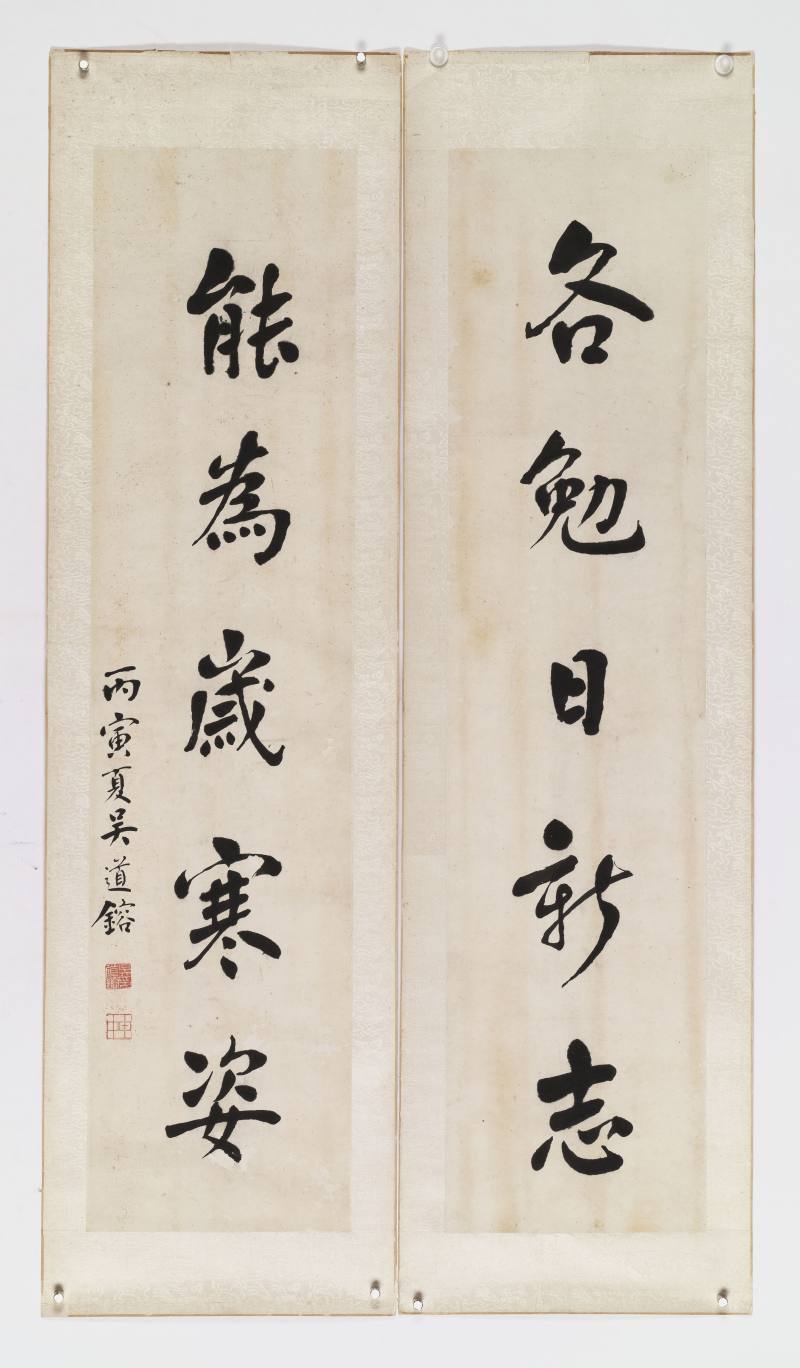 各勉日新志
能為歲寒姿
丙寅夏吴道鎔